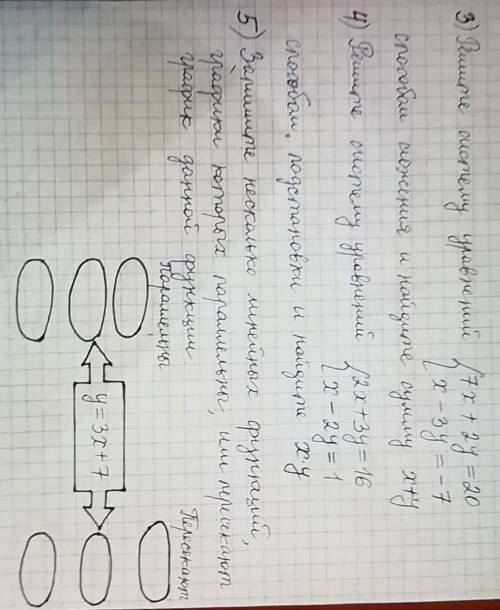 3) Решите систему уравнений { 7x + 2y = 20
x - 3y = -7
способом сложения и найдите сумму x+y
4) Решите систему уравнений { 2x + 3y = 16
x - 2y = 1
способом подстановки и найдите x·y
5) Запишите несколько линейных функций,
графики которых параллельны, или пересекают
график данной функции.
Параллельны
Пересекают
y = 3x + 7